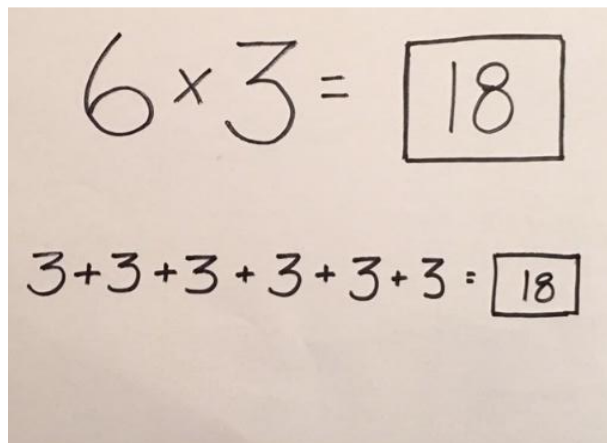 6 × 3 = 18
3 + 3 + 3 + 3 + 3 + 3 = 18